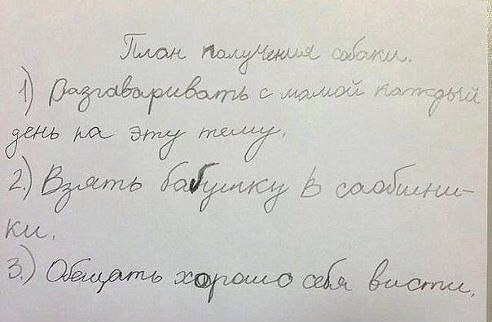 План получения собаки.
1) Разгаваривать с мамой каждый
день на эту тему.
2.) Взять бабушку в саобшни-
ки.
3.) Обещать хорошо себя висти.